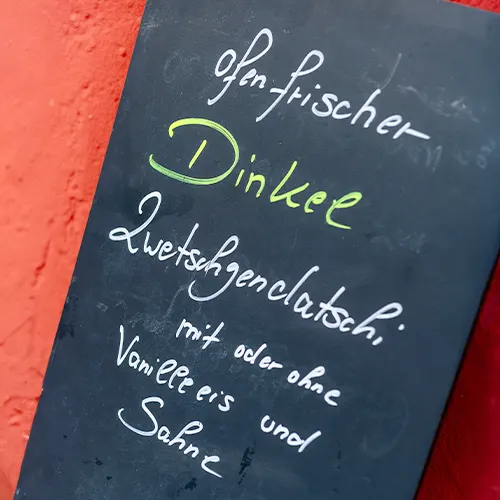 ofenfrischer
Dinkel
Zwetschgendatschi
mit oder ohne
Vanilleeis und
Sahne